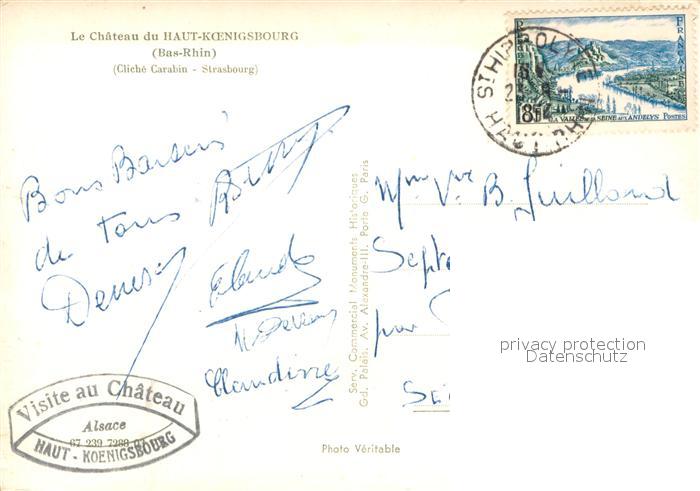 Le Château du HAUT-KŒNIGSBOURG
(Bas-Rhin)
(Cliché Carabin - Strasbourg)
Bons Baisers
de tous
Claude
Claudine
Visite au Château
Alsace
67 239 7288 01
HAUT-KOENIGSBOURG
Photo Véritable
Serv. Commercial Monuments Historiques
Gd. Palais. Av. Alexandre-III. Porte G. Paris
ST HIPPOLYTE
HAUT RHIN
FRANÇAISE
LA VALLÉE DE LA SEINE AUX ANDELYS POSTES
8F
Mme Vve B. Guilland
Septe
par
SEI
privacy protection
Datenschutz